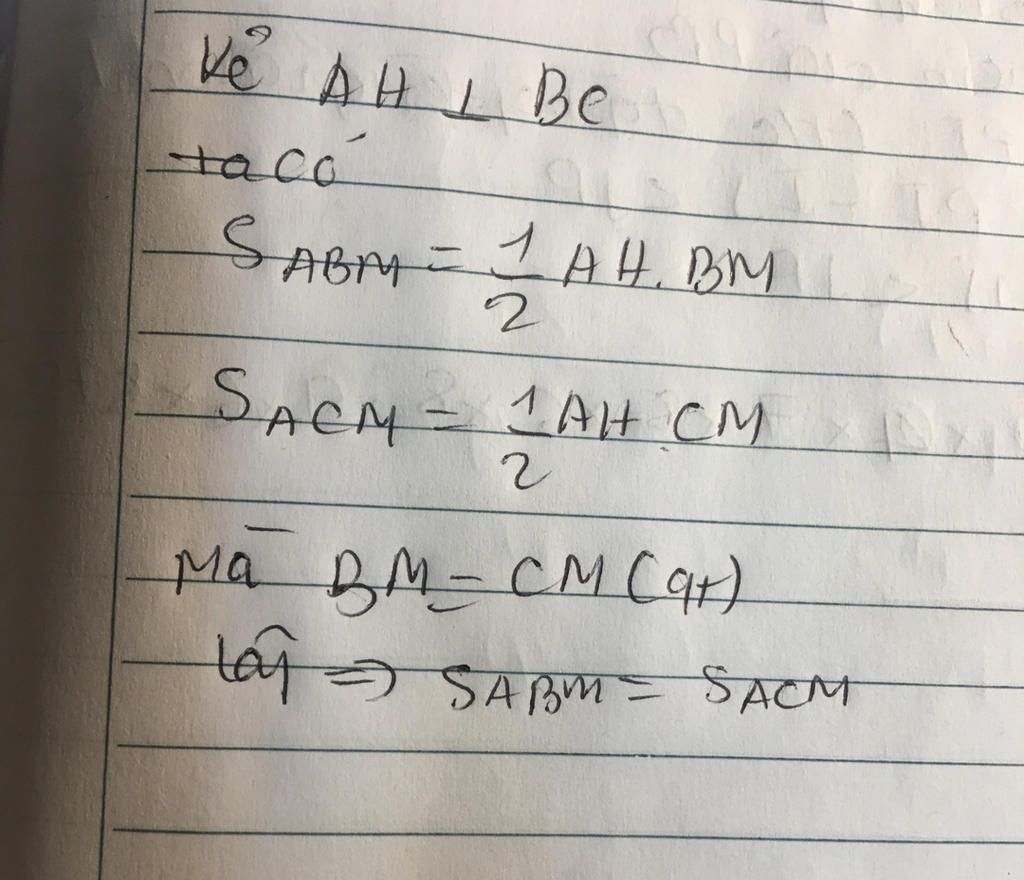 Kẻ AH ⊥ BC
ta có
S ABM = 1/2 AH. BM
S ACM = 1/2 AH. CM
Mà BM = CM (gt)
Vậy => S ABM = S ACM